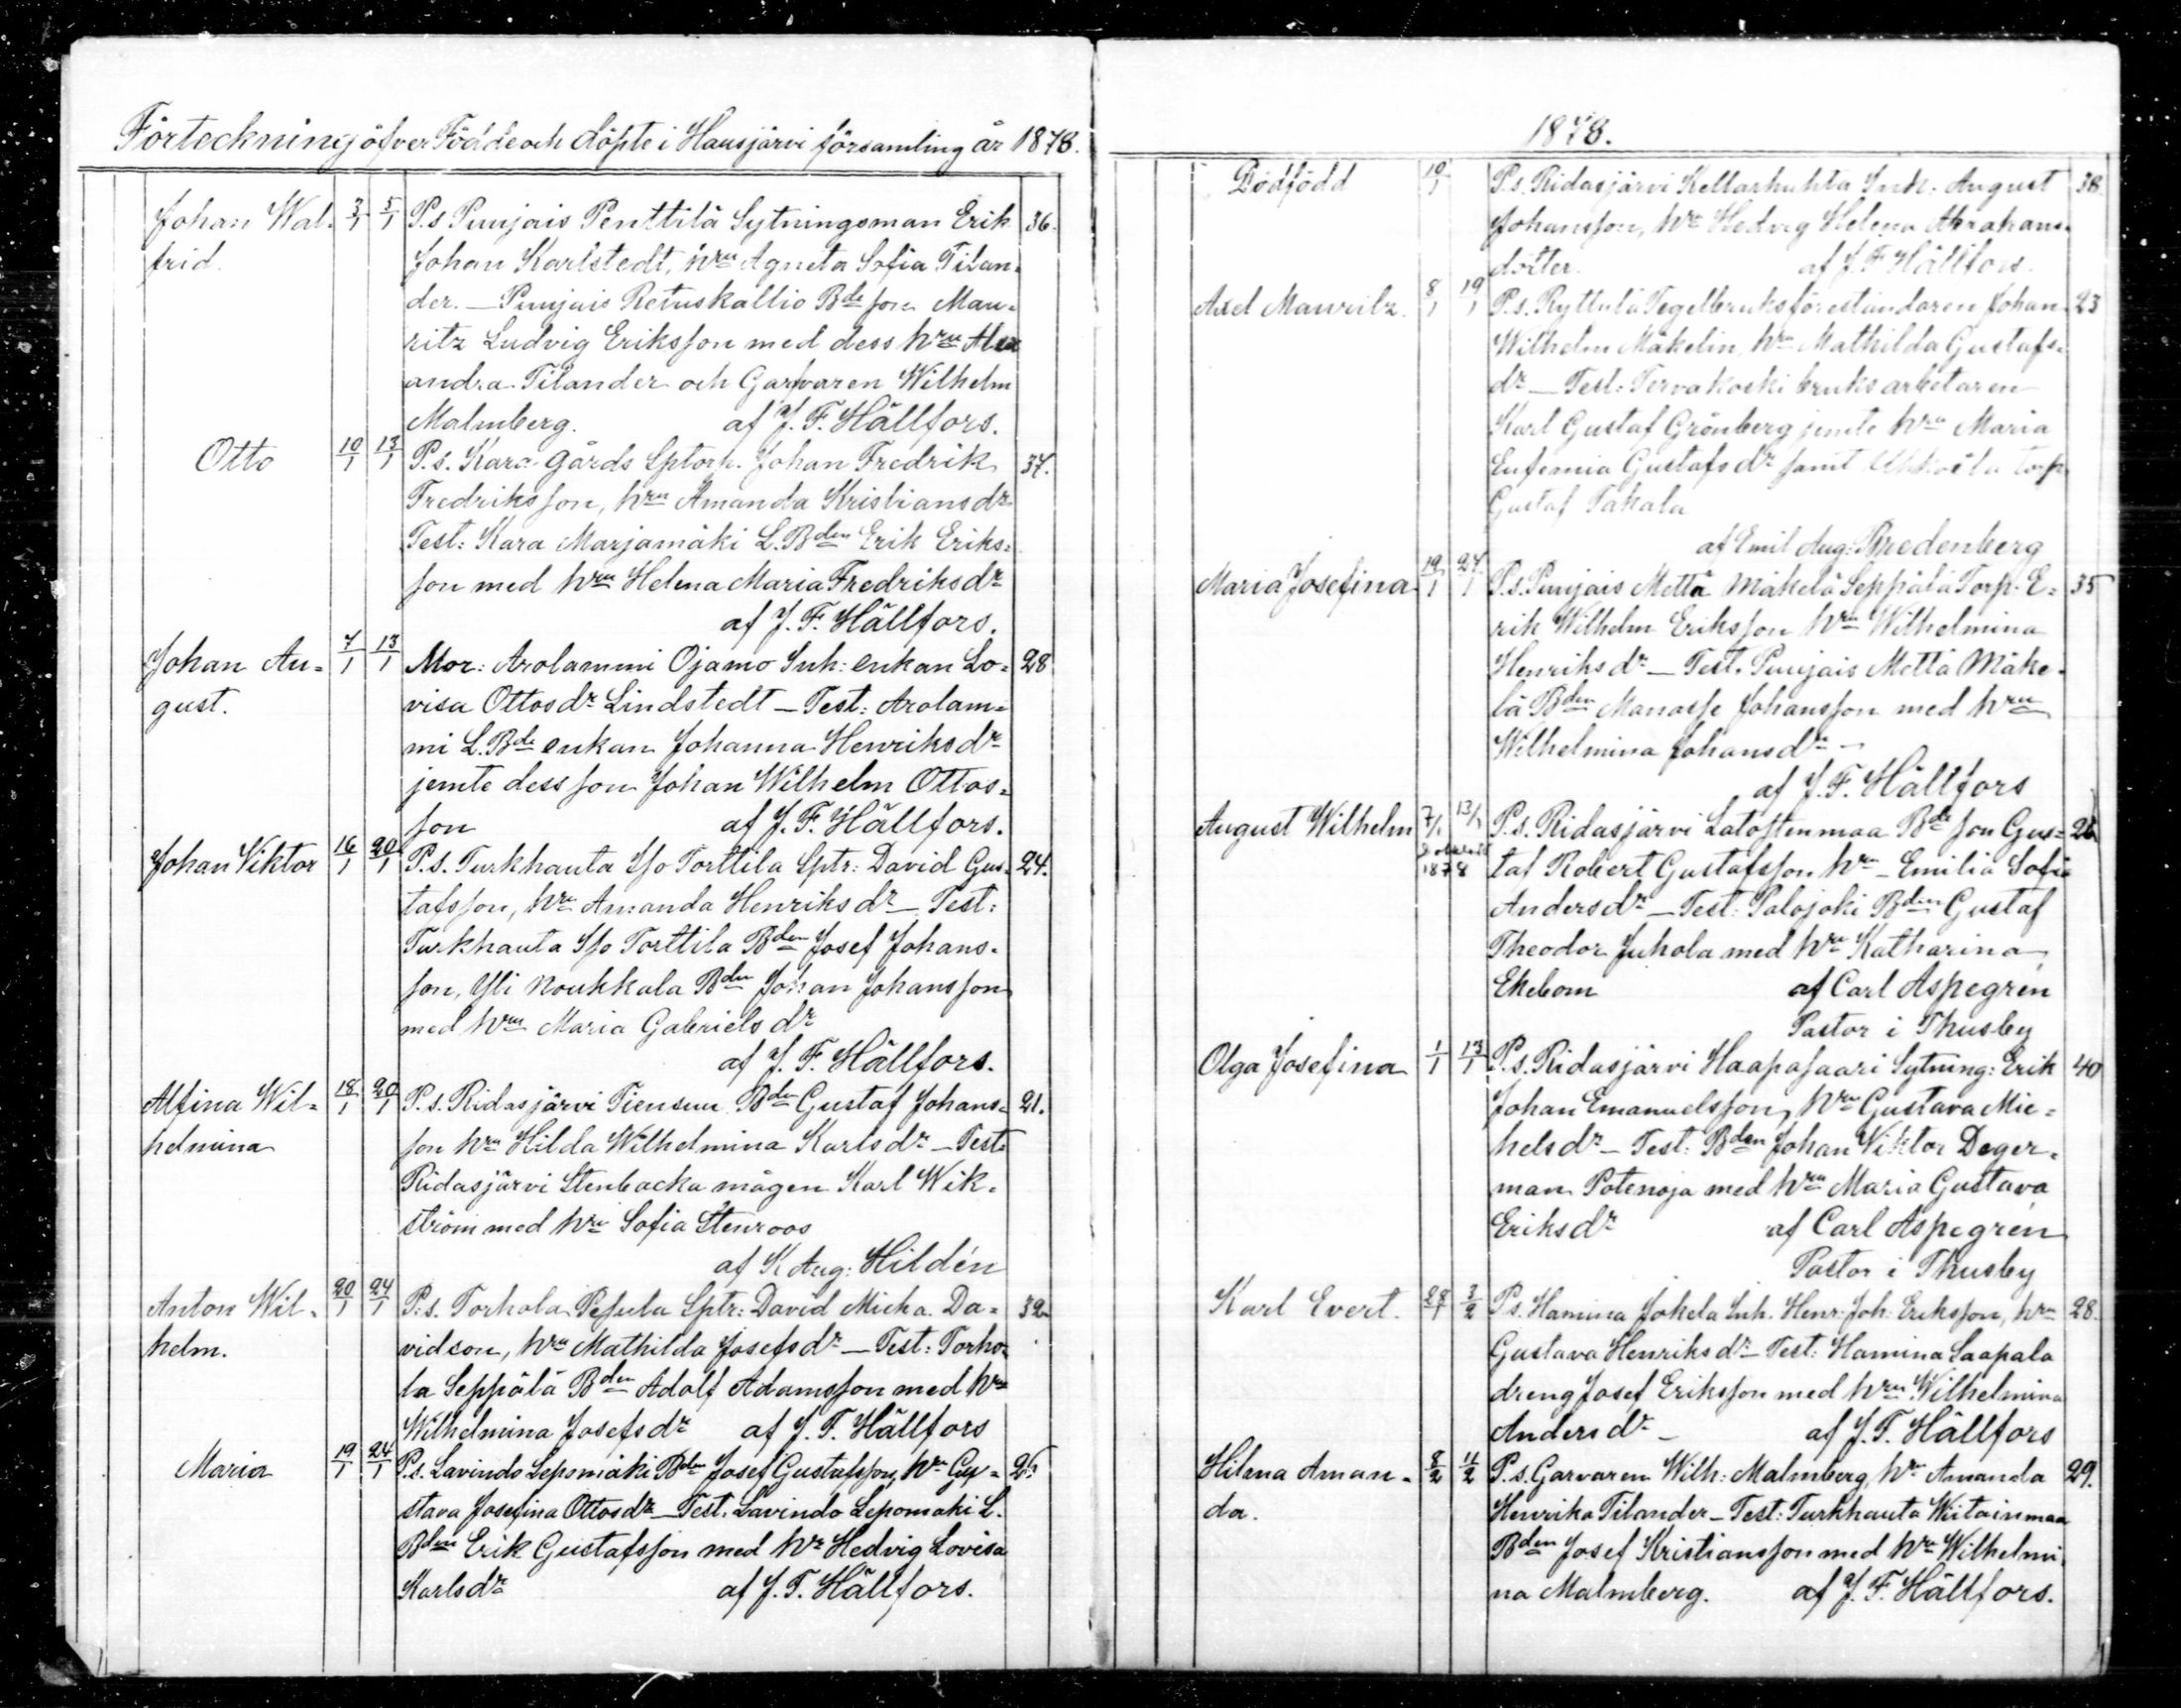 Förteckning öfver Födde och döpte i Hausjärvi församling år 1878.
Johan Wal- 3/1 5/1 P.s Puujais Penttilä Sytningsman Erik 36.
frid. Johan Karlstedt, hru Agneta Sofia Tilan-
der. — Puujais Retuskallio Bde son Mau-
ritz Ludvig Eriksson med dess hru Alex
andra Tilander och Garfvaren Wilhelm
Malmberg. af J. F. Hällfors.
Otto 10/1 13/1 P.s. Kara gårds Sptorp. Johan Fredrik 37.
Fredriksson, hru Amanda Kristiansdr
Test: Kara Marjamäki L.Bden Erik Eriks-
son med hru Helena Maria Fredriksdr
af J. F. Hällfors.
Johan Au- 7/1 13/1 Mor: Arolammi Ojamo Inh: enkan Lo- 28
gust. visa Ottosdr Lindstedt — Test: Arolam-
mi L.Bde enkan Johanna Henriksdr
jemte dess son Johan Wilhelm Ottos-
son af J. F. Hällfors.
Johan Viktor 16/1 20/1 P.s. Turkhauta Iso Torttila Sptr: David Gus- 24.
tafsson, hru Amanda Henriksdr — Test:
Turkhauta Iso Torttila Bden Josef Johans-
son, Yli Noukkala Bden Johan Johansson
med hru Maria Gabrielsdr
af J. F. Hällfors.
Alfina Wil- 18/1 20/1 P.s. Ridasjärvi Tiensuu Bden Gustaf Johans- 21.
helmina son hru Hilda Wilhelmina Karlsdr — Test:
Ridasjärvi Stenbacka mågen Karl Wik-
ström med hru Sofia Stenroos
af K Aug: Hildén
Anton Wil- 20/1 24/1 P.s. Torhola Pesula Sptr: David Micha Da- 32
helm. vidson, hru Mathilda Josefsdr — Test: Torho-
la Seppälä Bden Adolf Adamsson med hru
Wilhelmina Josefsdr af J. F. Hällfors
Maria 19/1 24/1 P.s. Lavindo Lepomäki Bden Josef Gustafsson, hru Gu-
stava Josefina Ottosdr — Test. Lavindo Lepomäki L.
Bden Erik Gustafsson med hru Hedvig Lovisa
Karlsdr af J. F. Hällfors.
1878.
Dödfödd 10/1 P.s. Ridasjärvi Kellarhuhta Inh: August 38.
Johansson, hru Hedvig Helena Abrahams-
dotter. af J. F. Hällfors.
Axel Mauritz. 8/1 19/1 P.s. Ryttylä Tegelbruksföreståndaren Johan 23
Wilhelm Mäkelin, hru Mathilda Gustafs-
dr — Test: Tervakoski bruksarbetaren
Karl Gustaf Grönberg jemte hru Maria
Eufemia Gustafsdr samt torp
Gustaf Takala
af Emil Aug: Bredenberg
Maria Josefina 19/1 27/1 P.s. Puujais Mettä Mäkelä Seppälä Torp: E- 35
rik Wilhelm Eriksson hru Wilhelmina
Henriksdr — Test. Puujais Mettä Mäke-
lä Bden Manasse Johansson med hru
Wilhelmina Johansdr —
af J. F. Hällfors
August Wilhelm 7/1 13/1 P.s. Ridasjärvi Latostenmaa Bde son Gus-
1878 taf Robert Gustafsson hru Emilia Sofia
Andersdr — Test: Palojoki Bden Gustaf
Theodor Juhola med hru Katharina
Ekebom af Carl Aspegrén
Pastor i Thusby
Olga Josefina 1/1 13/1 P.s. Ridasjärvi Haapasaari Sytning: Erik 40
Johan Emanuelsson, hru Gustava Mic-
helsdr — Test: Bden Johan Viktor Deger-
man Potenoja med hru Maria Gustava
Eriksdr af Carl Aspegrén
Pastor i Thusby
Karl Evert. 28/1 3/2 P.s. Hamina Jokela Inh. Henr: Joh: Eriksson, hru 28.
Gustava Henriksdr — Test: Hamina Saapala
dreng Josef Eriksson med hru Wilhelmina
Andersdr — af J. F. Hällfors
Hilma Aman- 8/2 11/2 P.s. Garvaren Wilh: Malmberg, hru Amanda 29.
da. Henrika Tilander — Test: Turkhauta Wiitainmaa
Bden Josef Kristiansson med hru Wilhelmi-
na Malmberg. af J. F. Hällfors.